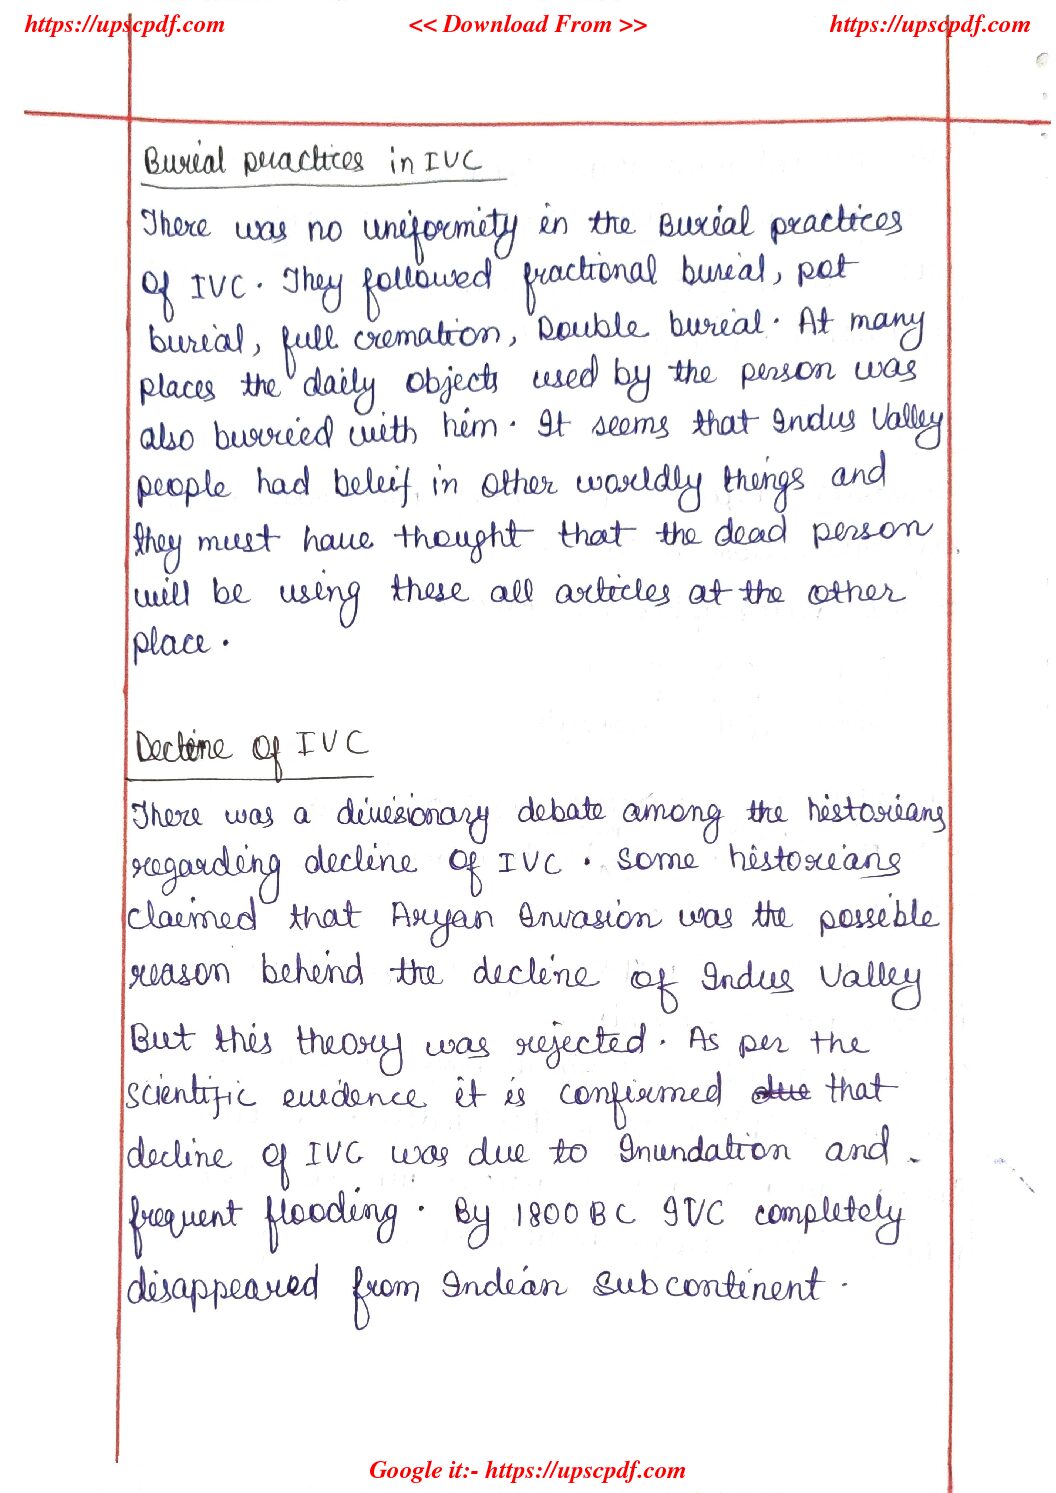 https://upscpdf.com << Download From >> https://upscpdf.com
Burial practices in IVC
There was no uniformity in the Burial practices
Of IVC. They followed fractional burial, pot
burial, full cremation, Double burial. At many
places the daily objects used by the person was
also burried with him. It seems that Indus Valley
people had beleif in other worldly things and
they must have thought that the dead person
will be using these all articles at the other
place.
Decline Of IVC
There was a divesionary debate among the historians
regarding decline Of IVC. Some historians
claimed that Aryan Invasion was the possible
reason behind the decline of Indus Valley
But this theory was rejected. As per the
scientific evidence it is confirmed due that
decline of IVC was due to Inundation and
frequent flooding. By 1800 BC IVC completely
disappeared from Indian Subcontinent.
Google it:- https://upscpdf.com